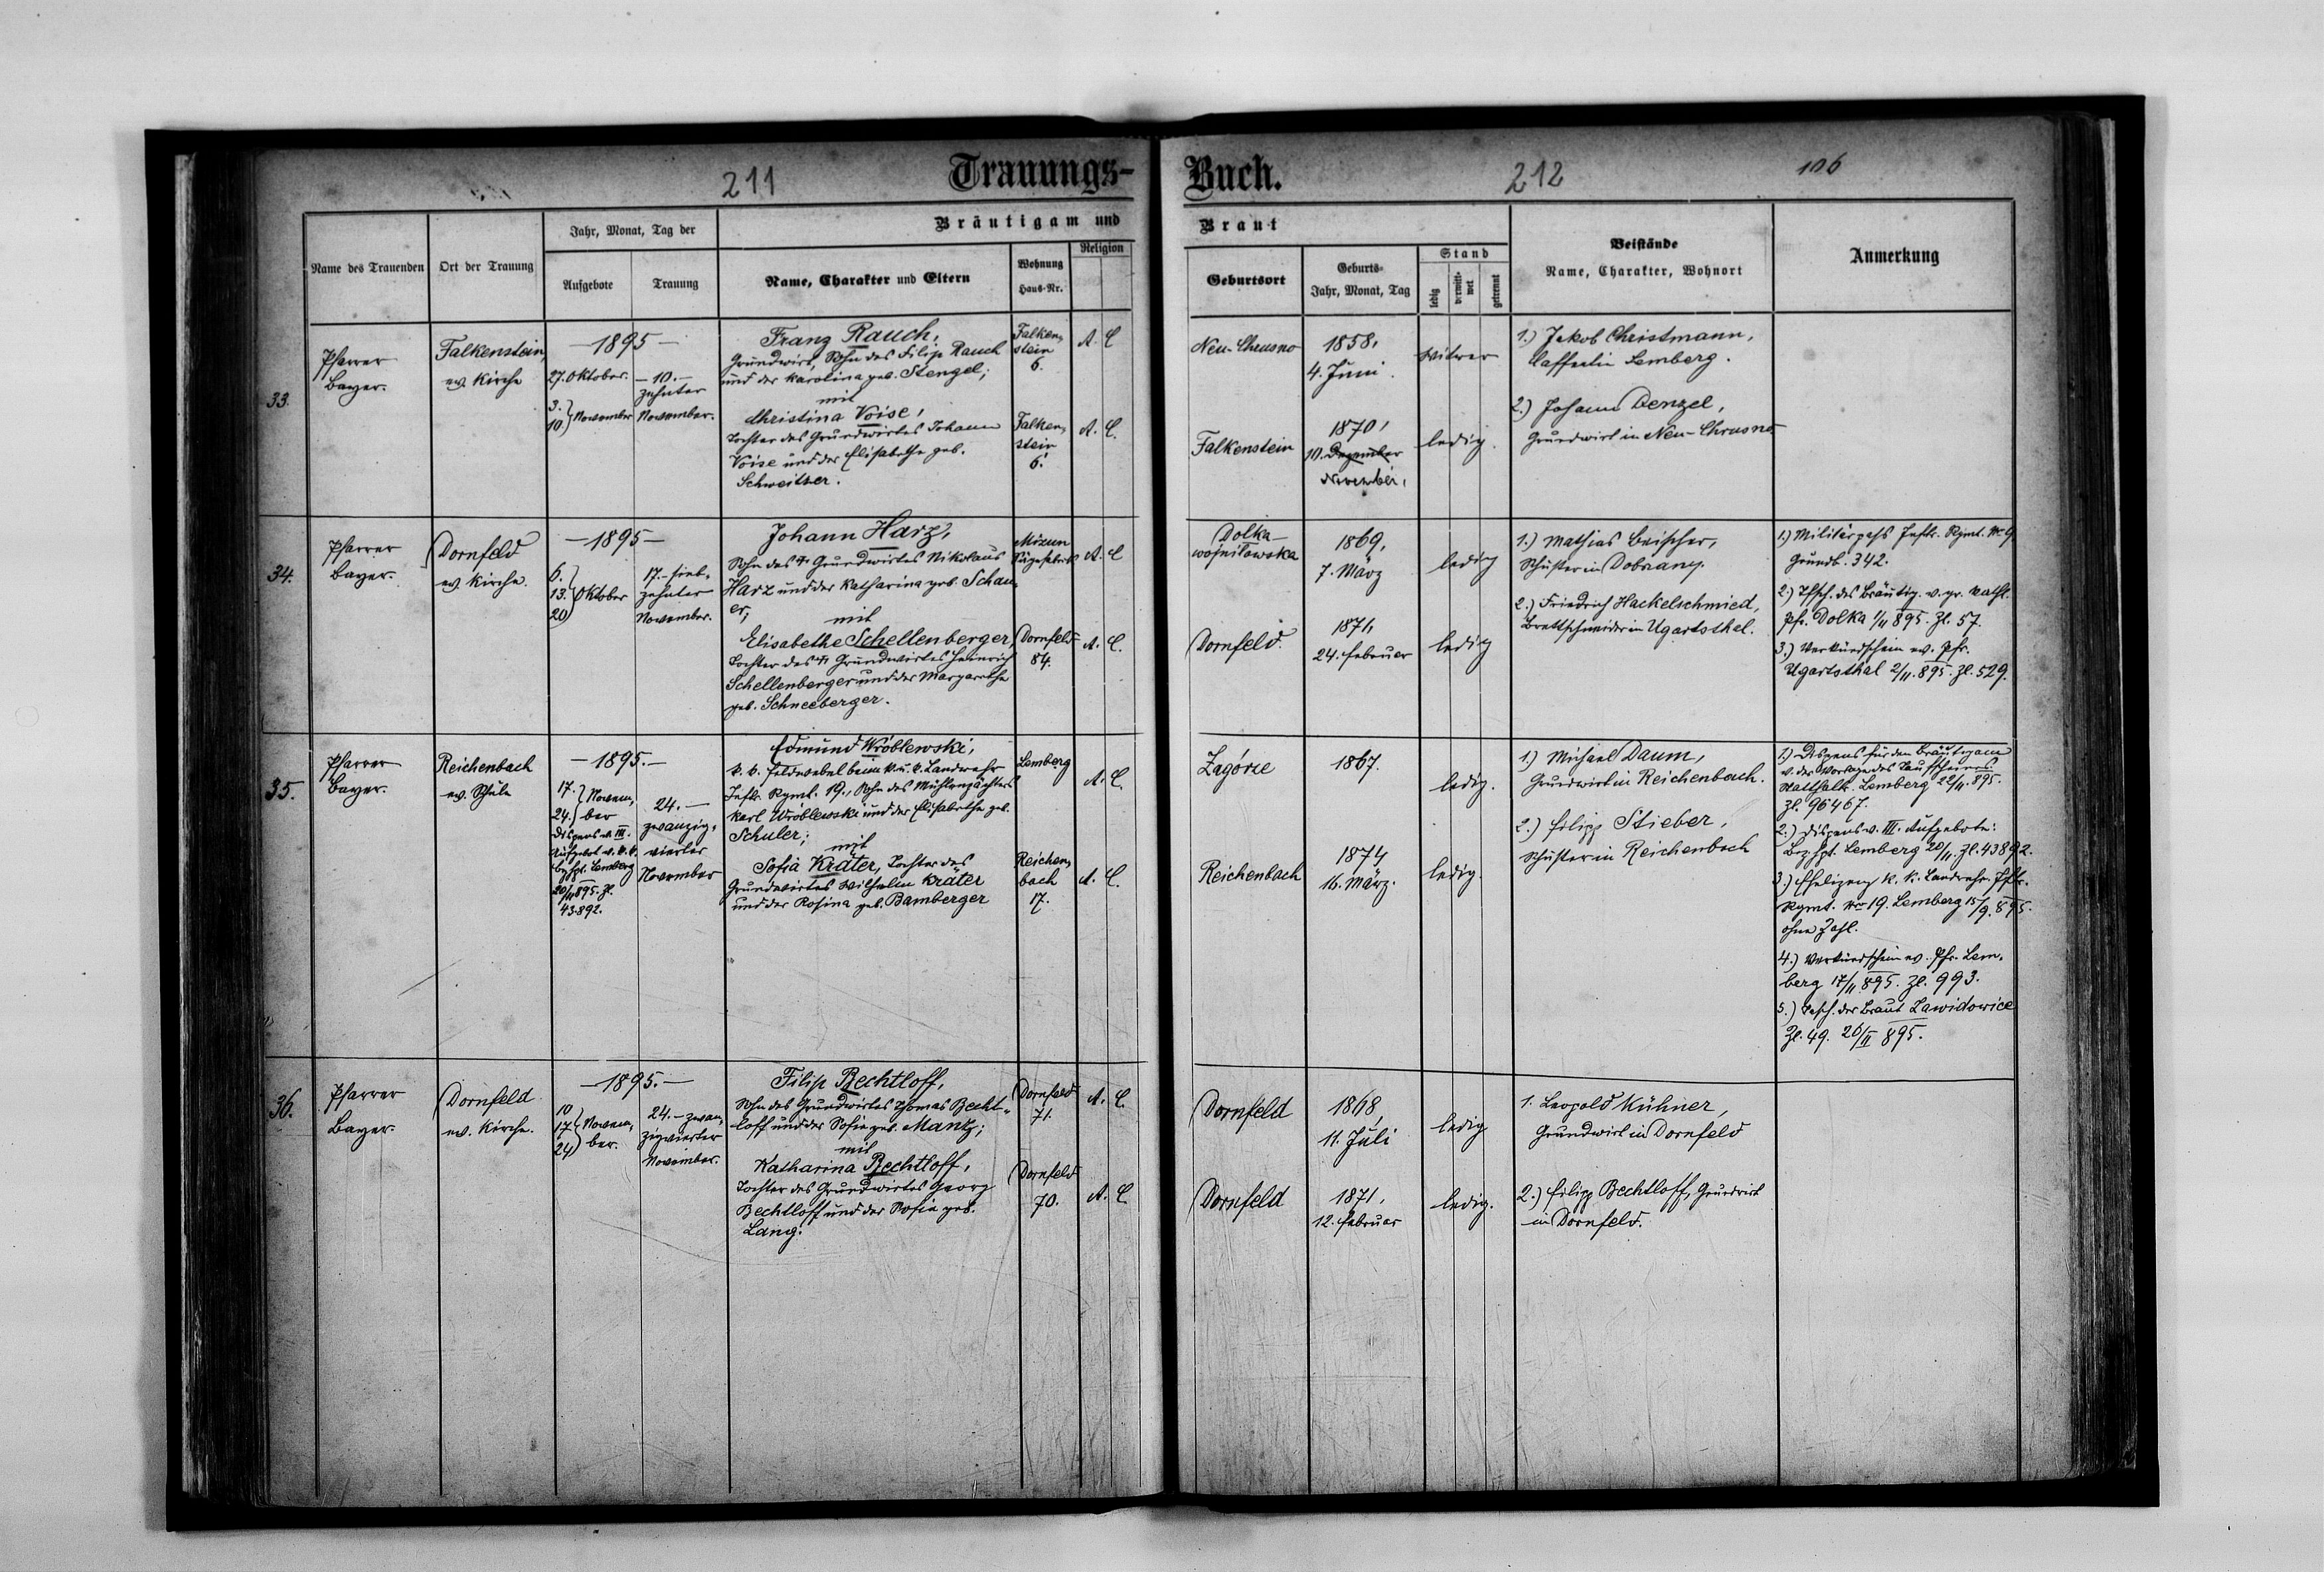 211
Trauungs-
Buch.
212
106
Name des Trauenden
Ort der Trauung
Jahr, Monat, Tag der
Aufgebote
Trauung
Bräutigam und
Braut
Name, Charakter und Eltern
Wohnung
Haus-Nr.
Religion
Geburtsort
Geburts-
Jahr, Monat, Tag
Stand
ledig
verwitt-
wet
getrennt
Beistände
Name, Charakter, Wohnort
Anmerkung
33.
Pfarrer
Bayer.
Falkenstein,
ev. Kirche
-1895-
27. Oktober.
3.
10. } November
-10.-
zehnter
November.
Franz Rauch,
Grundwirt, Sohn des Filip Rauch
und der Karolina geb. Stengel;
mit
Christina Voise,
Tochter des Grundwirtes Johann
Voise und der Elisabethe geb.
Schweitzer.
Falken-
stein
6.
A. C
Falken-
stein
6.
A. C.
Neu-Chrusno
1858,
4. Juni.
Witwer
Falkenstein
1870,
10. Dezember
November,
ledig.
1.) Jakob Christmann,
in Lemberg.
2.) Johann Denzel,
Grundwirt in Neu-Chrusno.
34.
Pfarrer
Bayer.
Dornfeld
ev. Kirche.
-1895-
6.
13. } Oktober
20
17.- sieb-
zehnter
November.
Johann Harz,
Sohn des † Grundwirtes Nikolaus
Harz und der Katharina geb. Schau-
er,
mit
Elisabethe Schellenberger,
Tochter des † Grundwirtes Heinrich
Schellenberger und der Margarethe
geb. Schneeberger.
Mizun
A. C
Dornfeld
84.
A. C.
Dolka-
wojnilowska
1869,
7. März
ledig
Dornfeld.
1871,
24. Februar
ledig
1.) Mathias
Schuster in Dobrzany.
2.) Friedrich Hackelschmied,
Brettschneider in Ugartsthal.
1.) Militärpass Inftr. Rgmt. Nr 9
Grundb. 342.
2.) Tfsch. des Bräutig. v. gr. kathl.
Pfr. Dolka 1/11 895. Zl. 57.
3.) Verkündschein ev. Pfr.
Ugartsthal 2/11. 895. Zl. 529.
35.
Pfarrer
Bayer.
Reichenbach
ev. Schule
-1895.-
17.
24. } Novem-
ber
Dispens v. III.
Aufgebot v. k. k.
Bezhpt. Lemberg
20/11 895. Zl.
43.892.
24.-
zwanzig-
vierter
November
Edmund Wróblewski,
k. k. Feldwebel beim k. u. k. Landwehr
Inftr. Rgmt. 19., Sohn des Mühlenpächters
Karl Wróblewski und der Elisabethe geb.
Schuler; mit
Sofia Kräter, Tochter des
Grundwirtes Wilhelm Kräter
und der Rosina geb. Bamberger
Lemberg
A. C.
Reichen-
bach
17.
A. C.
Zagórze
1867.
ledig.
Reichenbach
1874
16. März.
ledig.
1.) Michael Daum,
Grundwirt in Reichenbach.
2.) Filipp Stieber,
Schuster in Reichenbach
1.) Dispens für den Bräutigam
v. der Vorlage des Taufscheines.
Statthalt. Lemberg 22/11. 895.
Zl. 96467.
2.) Dispens v. III. Aufgebote:
Bez. hpt. Lemberg 20/11. Zl. 43892.
3.) k. k. Landwehr. Iftr.
Rgmt. Nro 19. Lemberg 15/9. 895.
ohne Zahl.
4.) Verkündschein ev. Pfr. Lem-
berg 17/11 895. Zl. 993.
5.) Tfsch. der Braut Dawidowice
Zl. 49. 20/II 895.
36.
Pfarrer
Bayer.
Dornfeld
ev. Kirche.
-1895.-
10
17 } Novem-
24 ber.
24.- zwan-
zigvierter
November.
Filip Bechtloff,
Sohn des Grundwirtes Thomas Becht-
loff und der Sofie geb. Mantz;
mit
Katharina Bechtloff,
Tochter des Grundwirtes Georg
Bechtloff und der Sofie geb.
Lang.
Dornfeld
71.
A. C.
Dornfeld
70.
A. C
Dornfeld
1868,
11. Juli
ledig
Dornfeld
1871,
12. Februar
ledig.
1. Leopold Kühner,
Grundwirt in Dornfeld
2.) Filipp Bechtloff, Grundwirt
in Dornfeld.